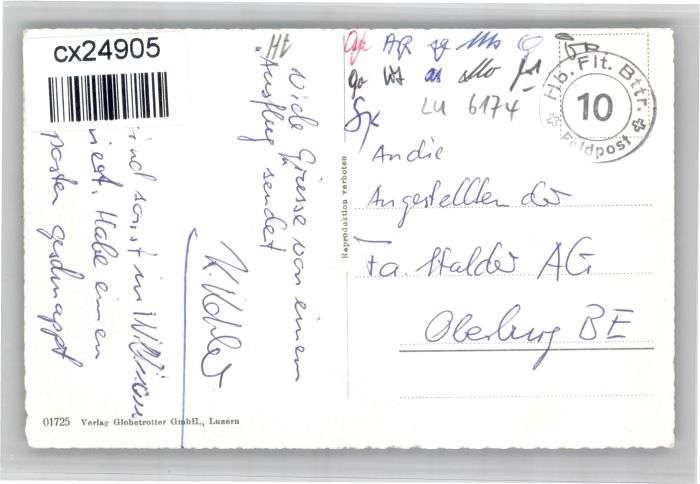 cx24905
Viele Grüsse von einem
"Ausflug sendet
K. Kohler
sind sonst in Willisau
Habe einen
posten geschnappt
01725 Verlag Globetrotter GmbH., Luzern
Reproduktion verboten
LU 6174
Hb. Flt. Bttr.
10
Feldpost
An die
Angestellten der
Fa. Stalder AG
Oberburg BE